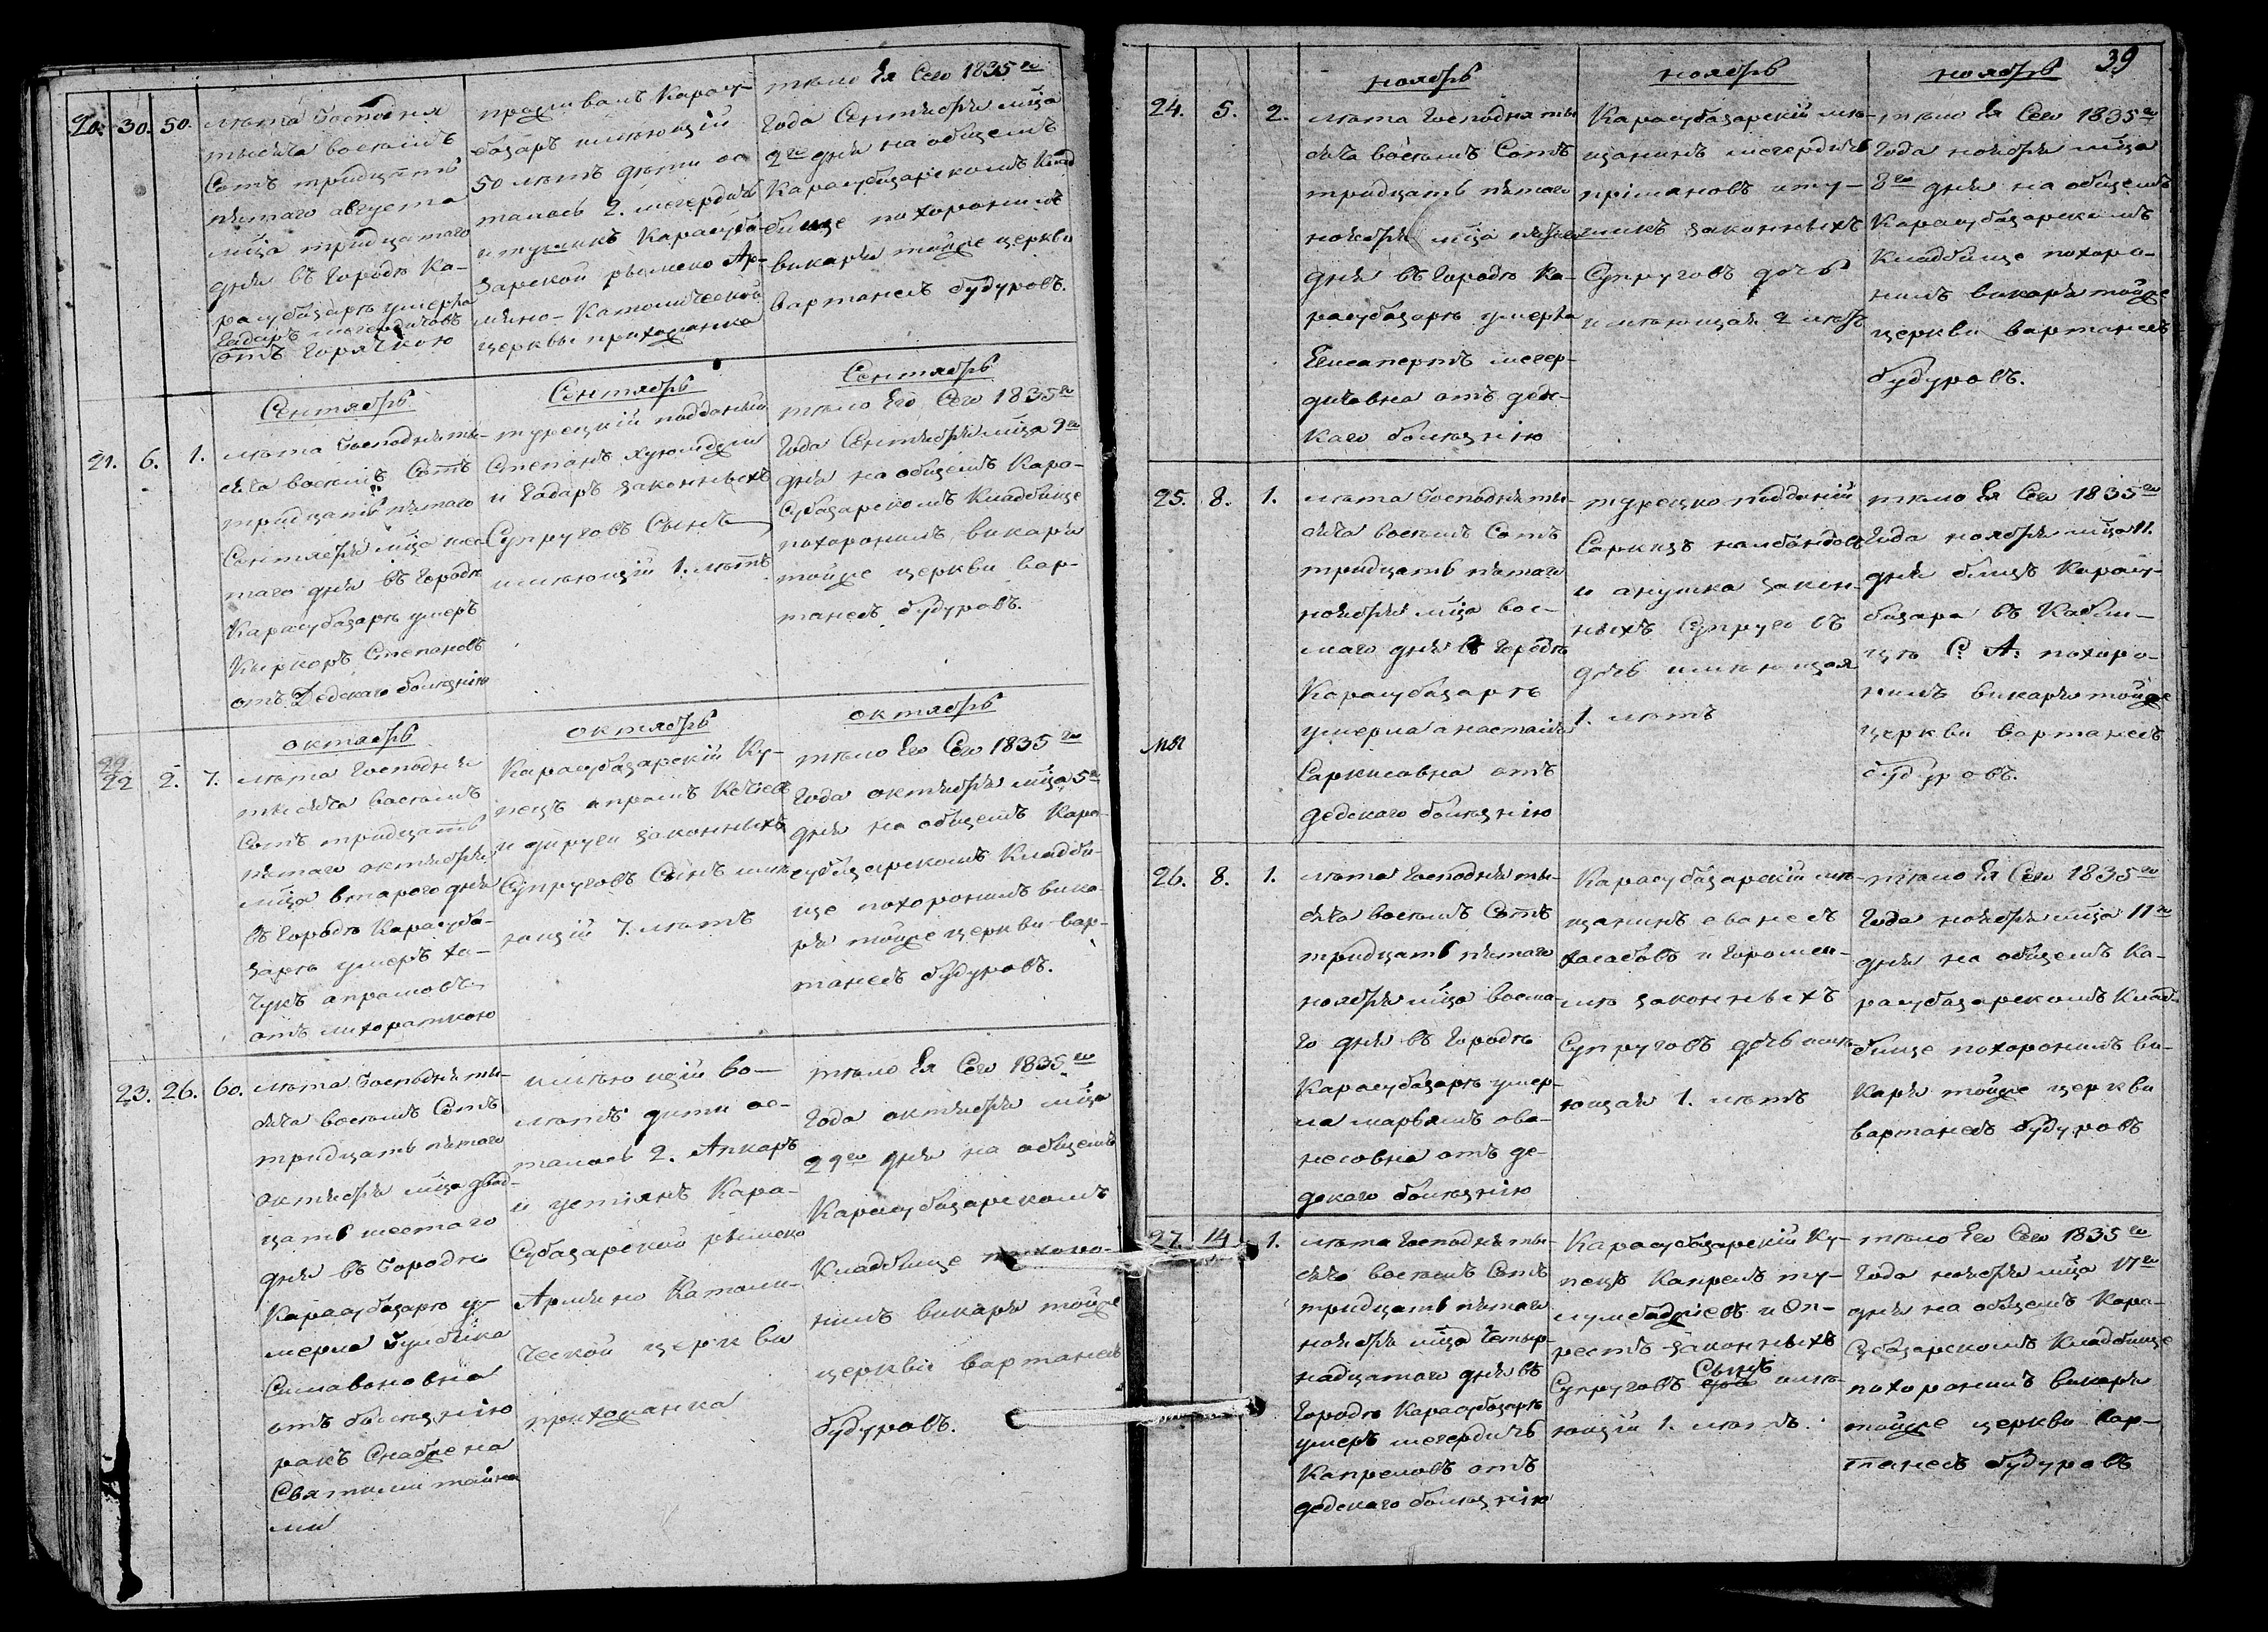 20. 30. 50.
лѣта Господня
тысяча восемъ
Сотъ тридцать
пятаго августа
мца тридцатаго
дня въ Городѣ Ка-
расубазарѣ умерла
Гадаръ мегердичовъ
отъ Горячкою
проживалъ Карасу-
базаръ имѣющій
50 лѣтъ дѣти ос
талось 2. мегердичъ
и тумикъ Карасуба-
зарской римско Ар-
мяно-Католической
церквы прихожанка
тѣло Ея Сего 1835го
Года Сентября мца
2го дня на общемъ
Карасубазарскомъ Клад
бище похоронилъ
викарія тойже церкви
вартанесъ будуровъ.
Сентябрь
Сентябрь
Сентябрь
21. 6. 1.
лѣта Господня ты-
сяча восемъ Сотъ
тридцать пятаго
Сентября мца шес
таго дня въ Городѣ
Карасубазарѣ умеръ
Киркоръ Степановъ
отъ Дедскаго болѣзнію
турецкій подданый
Степанъ
и Гадаръ законныхъ
Супруговъ Сынъ
имѣющій 1. лѣтъ
тѣло Его Сего 1835го
Года Сентября мца 9го
дня на общемъ Кара-
субазарскомъ Кладбище
похоронилъ викарія
тойже церкви вар-
танесъ будуровъ.
октябрь
октябрь
октябрь
22
22 2. 7.
лѣта Господня
тысяча восемъ
Сотъ тридцать
пятаго октября
мца втораго дня
въ Городѣ Карасуба-
зарѣ умеръ Ха-
чукъ апрамовъ
отъ лихораткою
Карасубазарскій Ку-
пецъ апрамъ
и законныхъ
Супруговъ Сынъ имѣ
ющій 7. лѣтъ
тѣло Его Сего 1835го
Года октября мца 5го
дня на общемъ Кара-
субазарскомъ Кладби-
ще похоронилъ вика-
рія тойже церкви вар-
танесъ будуровъ.
23. 26. 60.
лѣта Господня ты-
сяча восемъ Сотъ
тридцать пятаго
октября мца двад-
цать шестаго
дня въ Городѣ
Карасубазарѣ у-
мерла Гулбика
Симавоновна
отъ болѣзнію
ракъ Снабжена
Святыми тайна
ми
имѣющій 60-
лѣтъ дѣти ос-
талось 2. Аккаръ
и устіянъ Кара-
Субазарской римско
Армяно Католи-
ческой церкви
прихожанка
тѣло Ея Сего 1835го
Года октября мца
29го дня на общемъ
Карасубазарскомъ
Кладбище похоро-
нилъ викарія тойже
церквы вартанесъ
будуровъ.
39
ноябрь
ноябрь
ноябрь
24. 5. 2.
лѣта Господня ты
сяча восемъ Сотъ
тридцать пятаго
ноября мца пятаго
дня въ Городѣ Ка-
расубазарѣ умерла
Егисапертъ мегер-
дичовна отъ дед-
каго болѣзнію
Карасубазарскій мѣ-
щанинъ мегердичъ
прімановъ и ту-
микъ законныхъ
Супруговъ дочь
имѣющая 2 лѣтъ
тѣло Ея Сего 1835го
Года ноября мца
8го дня на общемъ
Карасубазарскомъ
Кладбище похоро-
нилъ викарія тойже
церкви вартанесъ
будуровъ.
25. 8. 1.
мы
лѣта Господня ты-
сяча восемъ Сотъ
тридцать пятаго
ноября мца вос-
маго дня въ Городѣ
Карасубазарѣ
умерла анастаія
Саркисовна отъ
дедскаго болѣзнію
турецко подданій
Саркизъ налбандовъ
и анушка закон-
ныхъ Супруговъ
дочь имѣющая
1. лѣтъ
тѣло Ея Сего 1835го
Года ноября мца 11.
дня близъ Карасу-
базара въ Кабли-
цѣ С. А. похоро-
нилъ викарія тойже
церкви вартанесъ
будуровъ.
26. 8. 1.
лѣта Господня ты-
сяча восемъ Сотъ
тридцать пятаго
ноября мца восма-
го дня въ Городѣ
Карасубазарѣ умер-
ла марьямъ ова-
несовна отъ де-
дскаго болѣзнію
Карасубазарскій мѣ-
щанинъ ованесъ
хасабовъ и Горомси-
мѣ законныхъ
Супруговъ дочь имѣ
ющая 1. лѣтъ
тѣло Ея Сего 1835го
Года ноября мца 11го
дня на общемъ Ка-
расубазарскомъ Клад-
бище похоронилъ ви-
карія тойже церкви
вартанесъ будуровъ
27. 14. 1.
лѣта Господня ты-
сяча восемъ Сотъ
тридцать пятаго
ноября мца четыр-
надцатаго дня въ
Городѣ Карасубазарѣ
умеръ мегердичъ
Капреловъ отъ
дедскаго болѣзнію
Карасубазарскій Ку-
пецъ Капрелъ ту-
лумбаджіевъ и Юп-
ресть законныхъ
Супруговъ Сынъ имѣ-
ющій 1. лѣтъ.
тѣло Его Сего 1835го
Года ноября мца 17го
дня на общемъ Кара-
субазарскомъ Кладбище
похоронилъ викарія
тойже церкви вар-
танесъ будуровъ